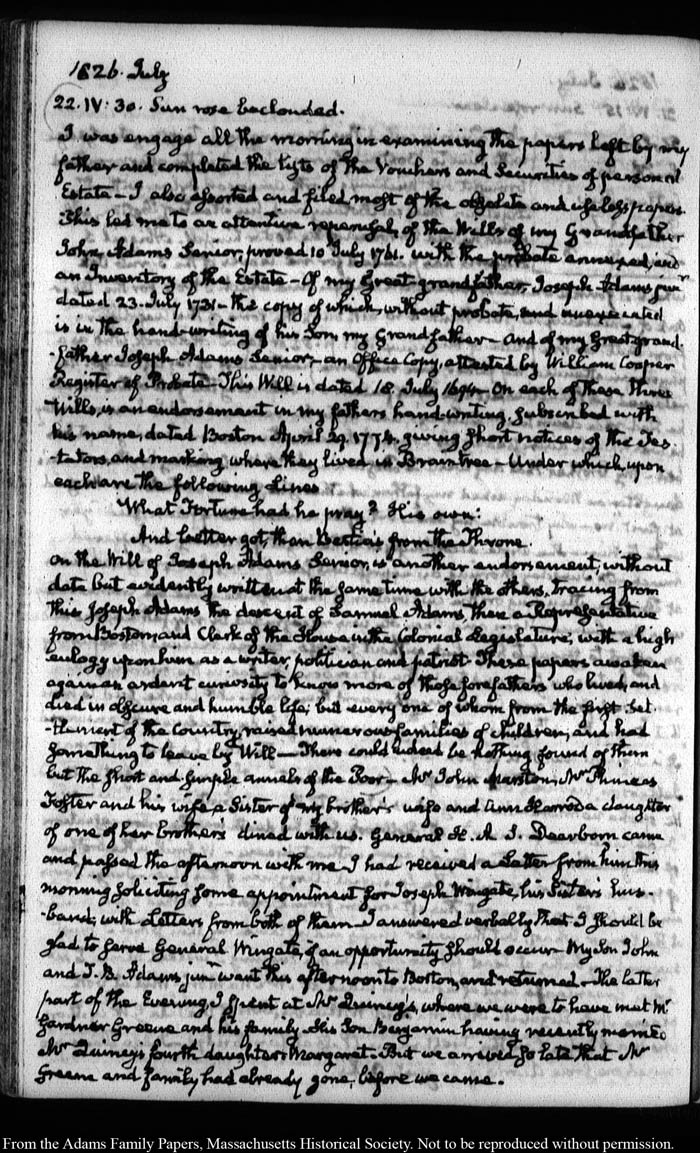 1826. July
22. IV: 30. Sun rose beclouded.
I was engage all the morning in examining the papers left by my
father and completed the lists of the Vouchers and Securities of personal
Estate — I also assorted and filed most of the obsolete and useless papers.
This led me to an attentive reperusal, of the Wills of my Grandfather
John Adams Senior, proved 10 July 1761. with the probate annexed, and
an Inventory of the Estate — Of my Great-grandfather, Joseph Adams junr
dated 23. July 1731 — the copy of which, without probate, and unexecuted
is in the hand-writing of his Son, my Grandfather — And of my Great grand-
-father Joseph Adams Senior, — an Office Copy, attested by William Cooper
Register of Probate — This Will is dated 18. July 1694 — On each of these three
Wills, is an endorsement in my fathers hand-writing, subscribed with
his name, dated Boston April 29. 1774. giving short notices of the Tes-
-tators, and marking where they lived in Braintree — Under which, upon
each are the following Lines
What Fortune had he pray? His own:
And better got, than Bestia's from the Throne.
On the Will of Joseph Adams Senior, is another endorsement, without
date but evidently written at the same time with the others, tracing from
this Joseph Adams the descent of Samuel Adams, then a Representative
from Boston, and Clerk of the House in the Colonial Legislature; with a high
eulogy upon him as a writer, politician and patriot — These papers awaken
again an ardent curiosity to know more of those forefathers who lived, and
died in obscure and humble life; but every one of whom from the first Set-
-tlement of the Country, raised numerous families of children, and had
something to leave by Will — There could indeed be nothing found of them
but the short and simple annals of the Poor — Mr John Marston, Mr Phineas
Foster and his wife, a Sister of my brother's wife and Ann Harrod a daughter
of one of her brothers dined with us. General H. A. S. Dearborn came
and passed the afternoon with me — I had received a Letter from him this
morning soliciting some appointment for Joseph Wingate, his Sister's hus-
-band; with Letters from both of them — I answered verbally that I should be
glad to serve General Wingate, if an opportunity should occur — My Son John
and T. B. Adams, junr went this afternoon to Boston, and returned — The latter
part of the Evening, I spent at Mr Quincy's, where we were to have met Mr
Gardner Greene and his family. His Son Benjamin having recently married
Mr Quincy's fourth daughter Margaret. But we arrived so late that Mr
Greene and family had already gone, before we came.
From the Adams Family Papers, Massachusetts Historical Society. Not to be reproduced without permission.